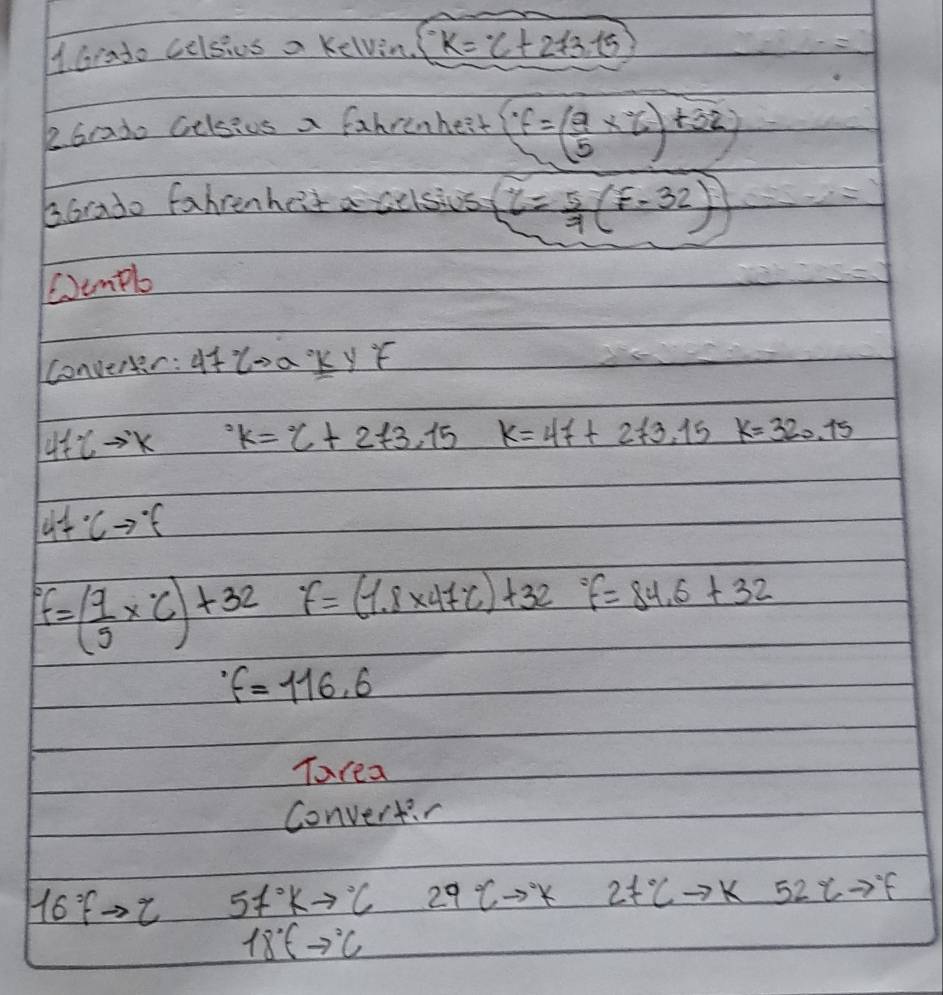 1. Grado Celsius a Kelvin. (°K = °C + 273.15)
2. Grado Celsius a fahrenheit (°F = (9/5 × °C) + 32)
3. Grado fahrenheit a celsius (°C = 5/9 (F - 32))
Ejemplo
Convertir: 47 °C → a °K y °F
47 °C → °K °K = °C + 273.15 K = 47 + 273.15 K = 320.15
47 °C → °F
°F = (9/5 × °C) + 32 °F = (1.8 × 47 °C) + 32 °F = 84.6 + 32
°F = 116.6
Tarea
Convertir
16 °F → °C 57 °K → °C 29 °C → °K 27 °C → K 52 °C → °F
18 °F → °C